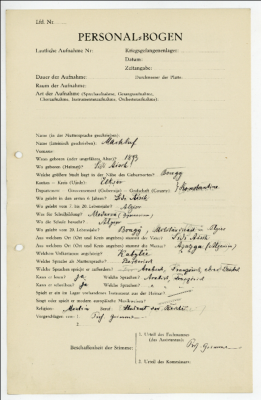 Lfd. Nr.
PERSONAL-BOGEN
Lautliche Aufnahme Nr: Kriegsgefangenenlager:
Datum:
Zeitangabe:
Dauer der Aufnahme: Durchmesser der Platte:
Raum der Aufnahme:
Art der Aufnahme (Sprechaufnahme, Gesangsaufnahme,
Choraufnahme, Instrumentenaufnahme, Orchesteraufnahme):
Name (in der Muttersprache geschrieben):
Name (lateinisch geschrieben):
Vorname:
Wann geboren (oder ungefähres Alter)? 1893
Wo geboren (Heimat)? Sidi Aïsch
Welche größere Stadt liegt in der Nähe des Geburtsortes? Bougy
Kanton — Kreis (Ujedz):
Departement — Gouvernement (Gubernija) — Grafschaft (County): Constantine
Wo gelebt in den ersten 6 Jahren? Sidi Aïsch
Wo gelebt vom 7. bis 20. Lebensjahr? Algier
Was für Schulbildung?
Wo die Schule besucht? Algier
Wo gelebt vom 20. Lebensjahr? Bougy, in Algier
Aus welchem Ort (Ort und Kreis angeben) stammt der Vater? Sidi Aïsch
Aus welchem Ort (Ort und Kreis angeben) stammt die Mutter?
Welchem Volksstamm angehörig? Kabyle
Welche Sprache als Muttersprache?
Welche Sprachen spricht er außerdem? Arabisch, Französisch,
Kann er lesen? ja Welche Sprachen? Arabisch Französisch
Kann er schreiben? ja Welche Sprachen?
Spielt er ein im Lager vorhandenes Instrument aus der Heimat?
Singt oder spielt er moderne europäische Musikweisen?
Religion: Beruf: Student der
Vorgeschlagen von: 1. Prof.
2.
Beschaffenheit der Stimme: 1. Urteil des Fachmannes
(des Assistenten): Prof.
2. Urteil des Kommissars: